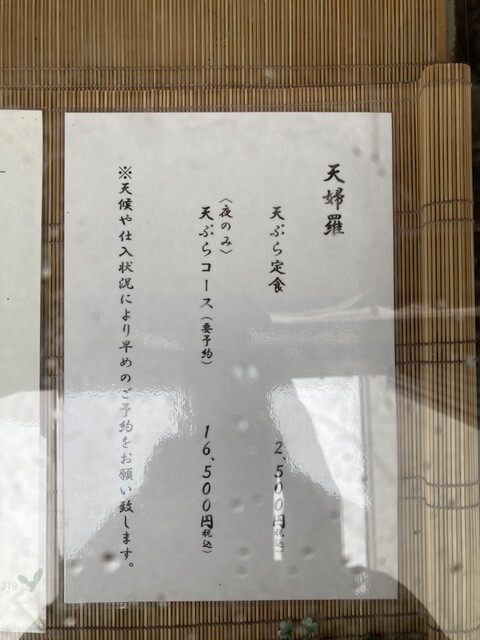 天婦羅
天ぷら定食 2,500円(税込)
〈夜のみ〉
天ぷらコース(要予約) 16,500円(税込)
※天候や仕入状況により早めのご予約をお願い致します。